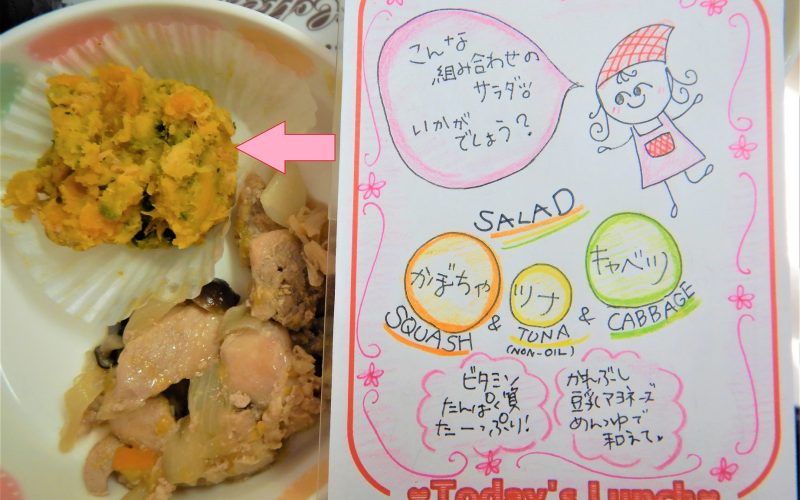 こんな
組み合わせの
サラダ
いかが
でしょう?
SALAD
かぼちゃ
ツナ
キャベツ
SQUASH & TUNA & CABBAGE
(NON-OIL)
ビタミン
たんぱく質
たーっぷり!
かれぶし
豆乳マヨネーズ
めんつゆで
和えて
♥Today's Lunch♥